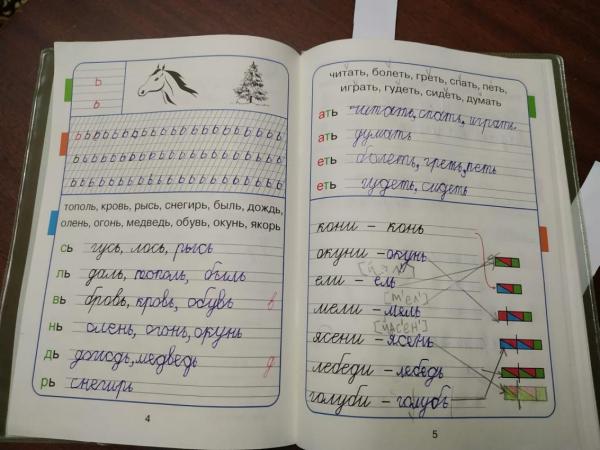 ь
ь
ь ь ь ь ь ь ь ь ь ь ь ь ь ь ь ь ь ь
ь ь ь ь ь ь ь ь ь ь ь ь ь ь ь ь ь ь
ь ь ь ь ь ь ь ь ь ь ь ь ь ь ь ь ь ь
тополь, кровь, рысь, снегирь, быль, дождь,
олень, огонь, медведь, обувь, окунь, якорь
сь гусь, лось, рысь
ль даль, тополь, быль
вь бровь, кровь, обувь в
нь олень, огонь, окунь
дь дождь, медведь д
рь снегирь
4
читать, болеть, греть, спать, петь,
играть, гудеть, сидеть, думать
ать читать, спать, играть,
ать думать
еть болеть, греть, петь
еть гудеть, сидеть
кони – конь
окуни – окунь
ели – ель
[м'ел']
мели – мель
ясени – ясень
лебеди – лебедь
голуби – голубь
5